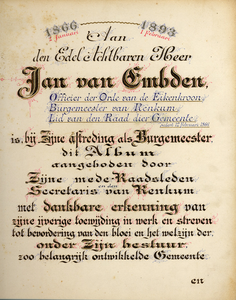 1866 1893
1 Januari 1 Februari
Aan
den Edel Achtbaren Heer
Jan van Embden,
Officier der Orde van de Eikenkroon,
Burgemeester van Renkum,
Lid van den Raad dier Gemeente,
is, bij Zijne aftreding als Burgemeester,
dit Album
aangeboden door
Zijne mede-Raadsleden
en den
Secretaris van Renkum
met dankbare erkenning van
zijne ijverige toewijding in werk en streven
tot bevordering van den bloei en het welzijn der,
onder Zijn bestuur,
zoo belangrijk ontwikkelde Gemeente
en